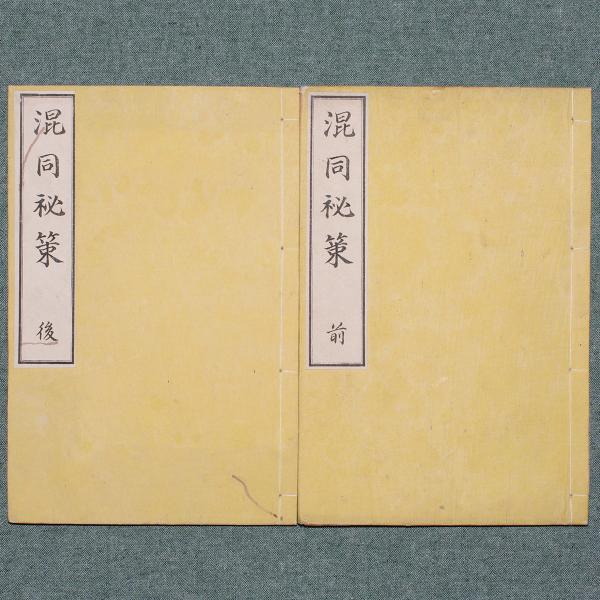 混同祕策 前
混同祕策 後